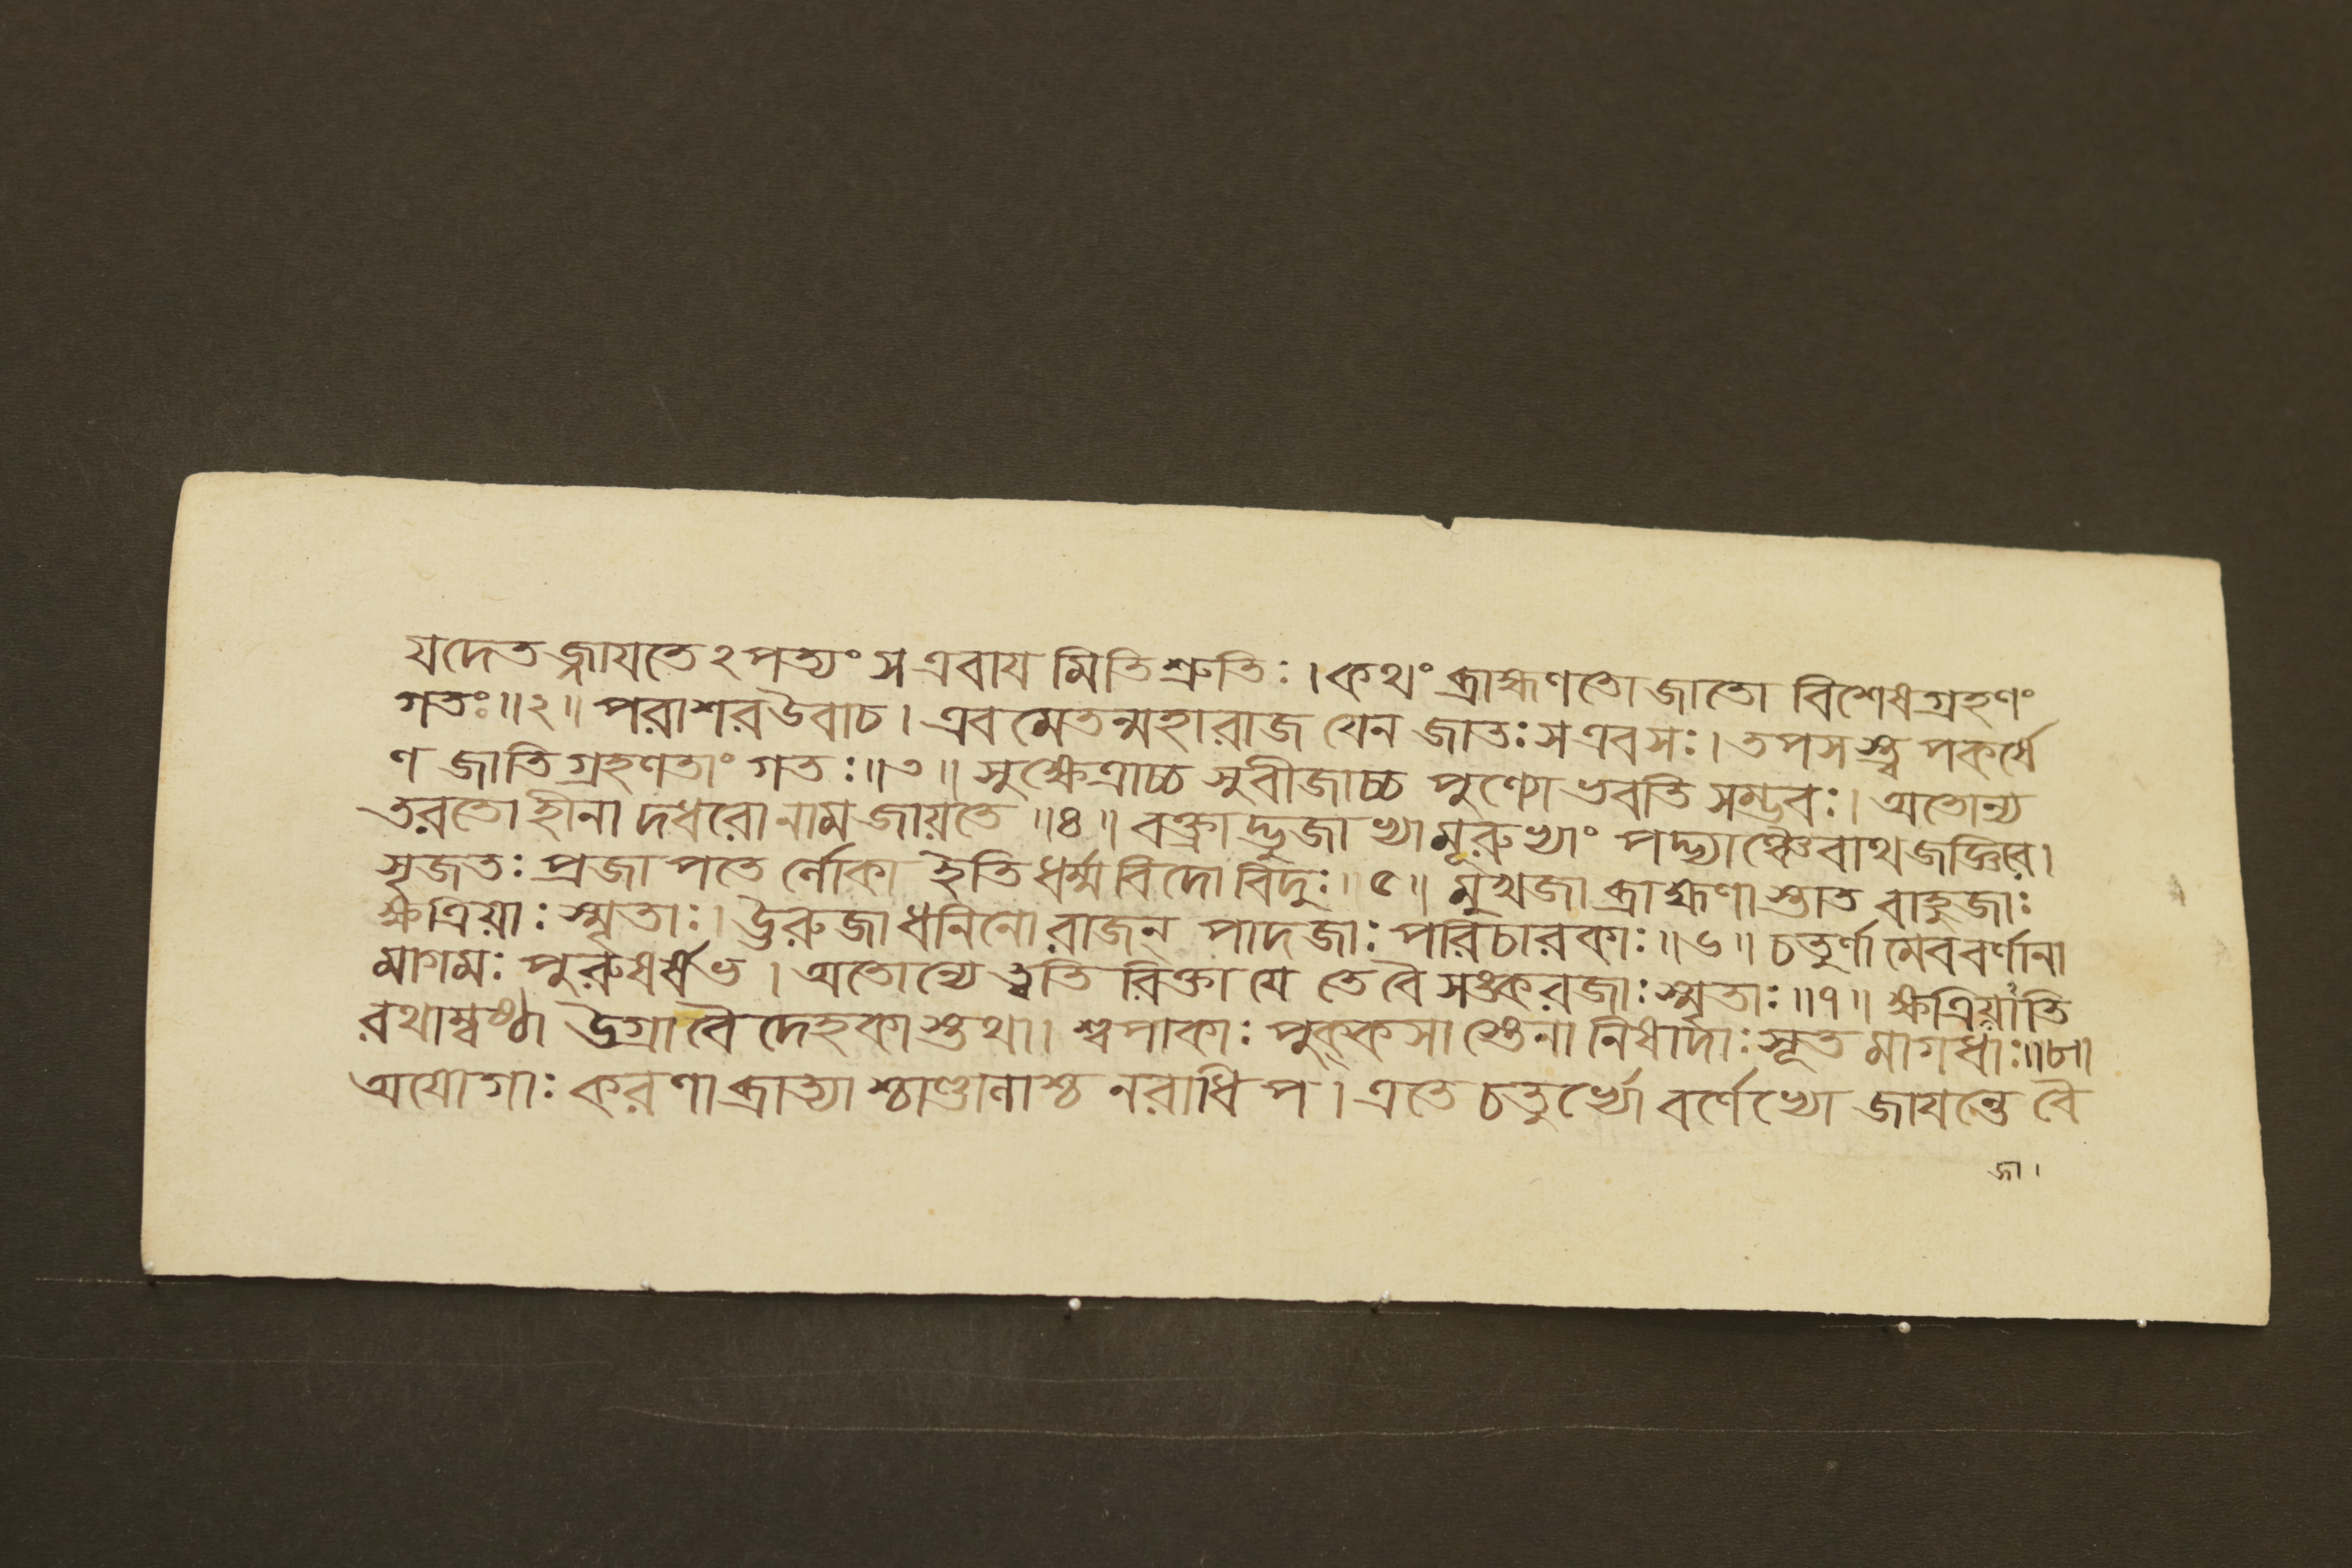 যদেতজ্জায়তেঽপত্যং স এবায়মিতি শ্রুতিঃ। কথং ব্রাহ্মণতো জাতো বিশেষগ্রহণং
গতঃ॥২॥ পরাশর উবাচ। এবমেতন্মহারাজ যেন জাতঃ স এব সঃ। তপসস্ত্বপকর্ষে
ণ জাতিগ্রহণতাং গতঃ॥৩॥ সুক্ষেত্রাচ্চ সুবীজাচ্চ পুণ্যো ভবতি সম্ভবঃ। অতোন্য
তরতো হীনাদধরো নাম জায়তে॥৪॥ বক্ত্রাদ্ভুজাভ্যামূরুভ্যাং পদ্ভ্যাঞ্চৈবাথ জজ্ঞিরে।
সৃজতঃ প্রজাপতের্লোকা ইতি ধর্ম্মবিদো বিদুঃ॥৫॥ মুখজা ব্রাহ্মণাস্তাত বাহুজাঃ
ক্ষত্রিয়াঃ স্মৃতাঃ। ঊরুজা ধনিনো রাজন্ পাদজাঃ পরিচারকাঃ॥৬॥ চতুর্ণামেব বর্ণানা
মাগমঃ পুরুষর্ষভ। অতোন্যে ত্বতিরিক্তা যে তে বৈ সঙ্করজাঃ স্মৃতাঃ॥৭॥ ক্ষত্রিয়াতি
রথাম্বষ্ঠা উগ্রা বৈদেহকাস্তথা। শ্বপাকাঃ পুক্কসা স্তেনা নিষাদাঃ সূতমাগধাঃ॥৮॥
অযোগাঃ করণা ব্রাত্যাশ্চাণ্ডালাশ্চ নরাধিপ। এতে চতুর্ভ্যো বর্ণেভ্যো জায়ন্তে বৈ